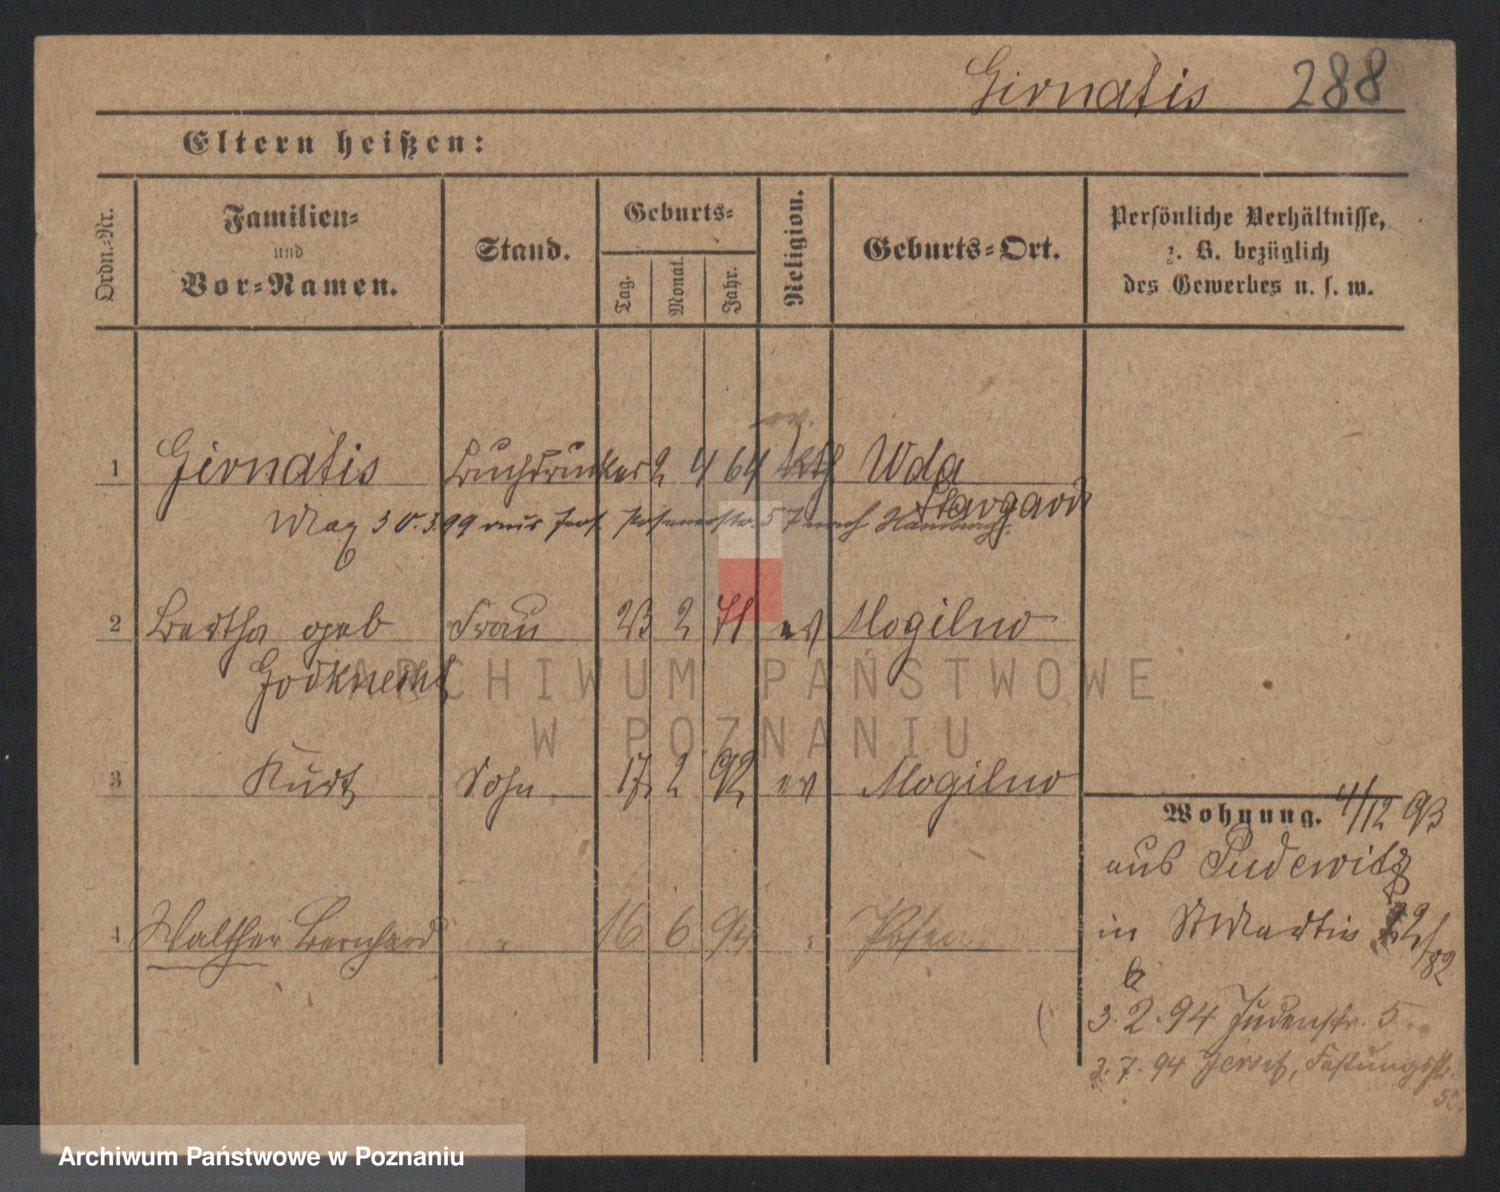 Girnatis 288
Eltern heißen:
Ordn.-Nr.
Familien-
und
Vor-Namen.
Stand.
Geburts-
Tag.
Monat.
Jahr.
Religion.
Geburts-Ort.
Persönliche Verhältnisse,
z. B. bezüglich
des Gewerbes u. s. w.
ev.
1 Girnatis Buchdrucker 2 4 64 kth Wda
Stargard
30.3.99 aus Jers. Posenerstr. 57 nach Hamburg.
2 Bertha geb Frau 23 2 71 ev Mogilno
Godknecht
3 Kurt Sohn 17 2 92 ev Mogilno
4 Walther Bernhard " 16 6 94 " Posen
Wohnung. 4/12 93
aus Pudewitz
in St Martin
b
3.2.94 Judenstr. 5
3.7.94 Jersitz, Festungsstr.
ARCHIWUM PAŃSTWOWE
W POZNANIU
Archiwum Państwowe w Poznaniu